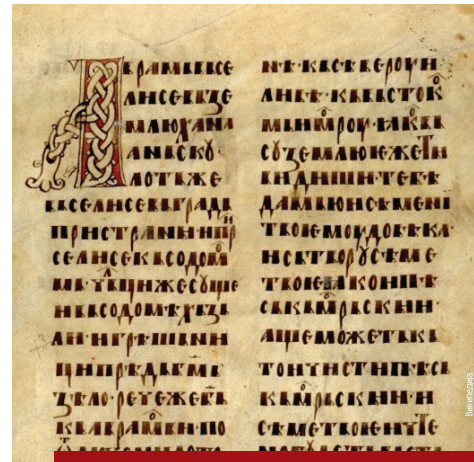 АВРАМЬ ВЬСЕ
ЛИ СЕ ВЬ ЗЕ
МЛЮ ХАНА
АНЬСКУ·
ЛОТЬ ЖЕ
ВЬСЕЛИ СЕ ВЬ ГРАДЬ
ПРИСТРАНЬНИ И ПР
СЕЛИ СЕ КЬ СОДОМ
МЬ· ЧЛЦИ ЖЕ СУЩЕ
И ВЬ СОДОМѢХЬ ЗЬ
ЛИ· И ГРѢШЬНИ
ЦИ ПРѢДЬ БГМЬ
ЗѢЛО· РЕЧЕ ЖЕ БЬ
КЬ АВРАМОВИ ПО
НѢ· КЬ СѢВЕРОУ И
ЛИВѢ· КЬ ВЬСТОК
МЬ И МОРОУ· ꙖКО ВЬ
СУ ЗЕМЛЮ ЮЖЕ ТИ
ВИДИШИ· ТЕБѢ
ДАМЬ Ю И СѢМЕНИ
ТВОЕМОУ ДО ВѢКА
И СЬТВОРУ СѢМЕ
ТВОЕ
СЬКЬ МОРЬСКЫИ
АЩЕ МОЖЕТЬ КЬ
ТО ИЧИСТИ ПѢСЬ
КЬ МОРЬСКЫИ И
СѢМЕ ТВОЕ ИЧТЕ
Википедија